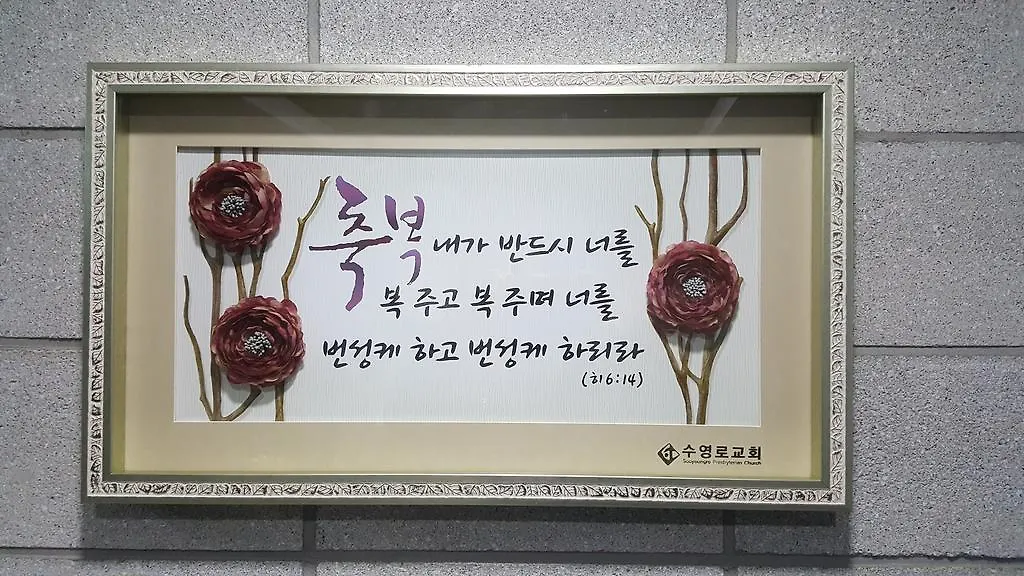 축복 내가 반드시 너를
복 주고 복 주며 너를
번성케 하고 번성케 하리라
(히6:14)
수영로교회
Sooyoungro Presbyterian Church